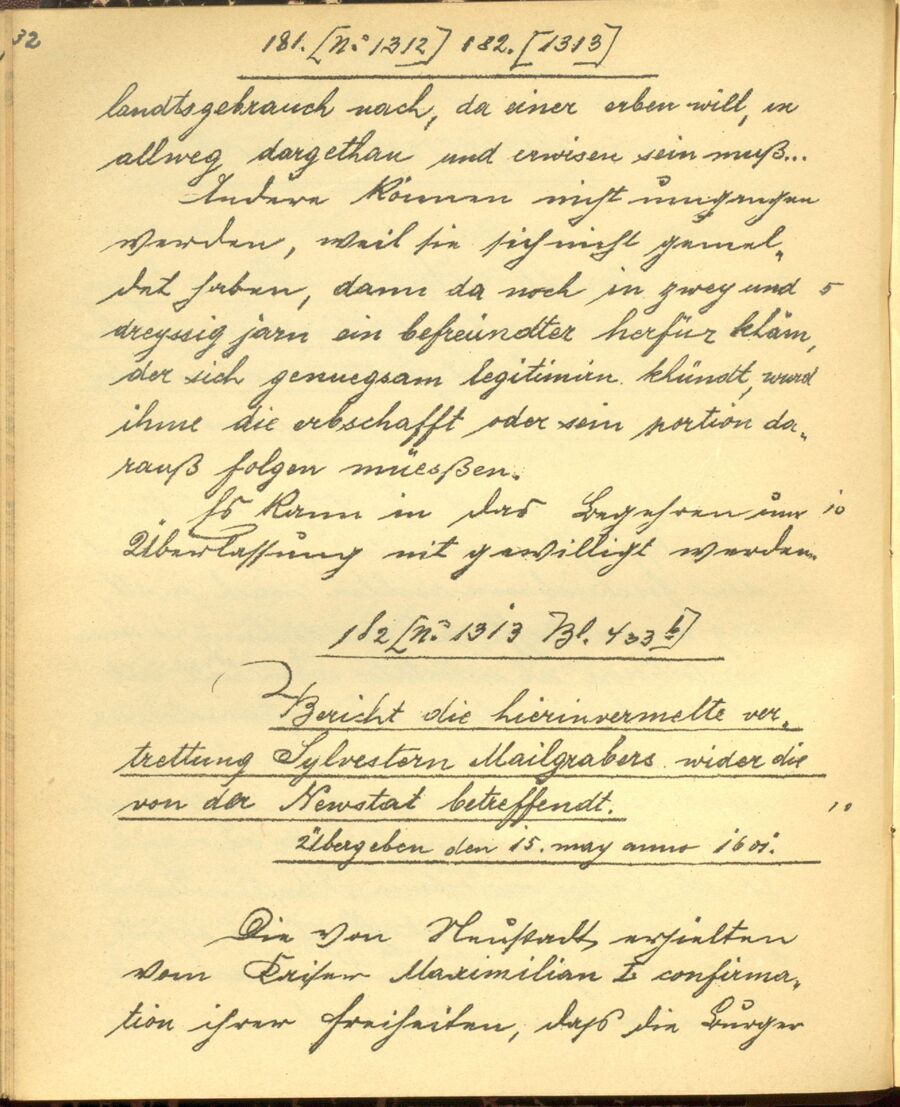 32
181. [No 1312] 182. [1313]
landtsgebrauch nach, da einer erben will, in
allweg dargethan und erwisen sein muß...
Andere können nicht umgangen
werden, weil sie sich nicht gemel„
det haben, dann da noch in zwey und 5
dreyssig jarn ein befreündter herfür khäm,
der sich genuegsam legitimirn khündt, wurd
ihme die erbschafft oder sein portion da„
rauß folgen müesßen.
Es kann in das Begehren um 10
Überlassung nit gewilligt werden.
182 [No 1313 Bl. 433 b]
Bericht die hierinvermelte ver„
trettung Sylvestern Mailgrabers wider die
von der Newstat betreffendt. 10
Übergeben den 15. may anno 1601.
Die von Neustadt erhielten
vom Kaiser Maximilian I confirma„
tion ihrer Freiheiten, daß die Burger